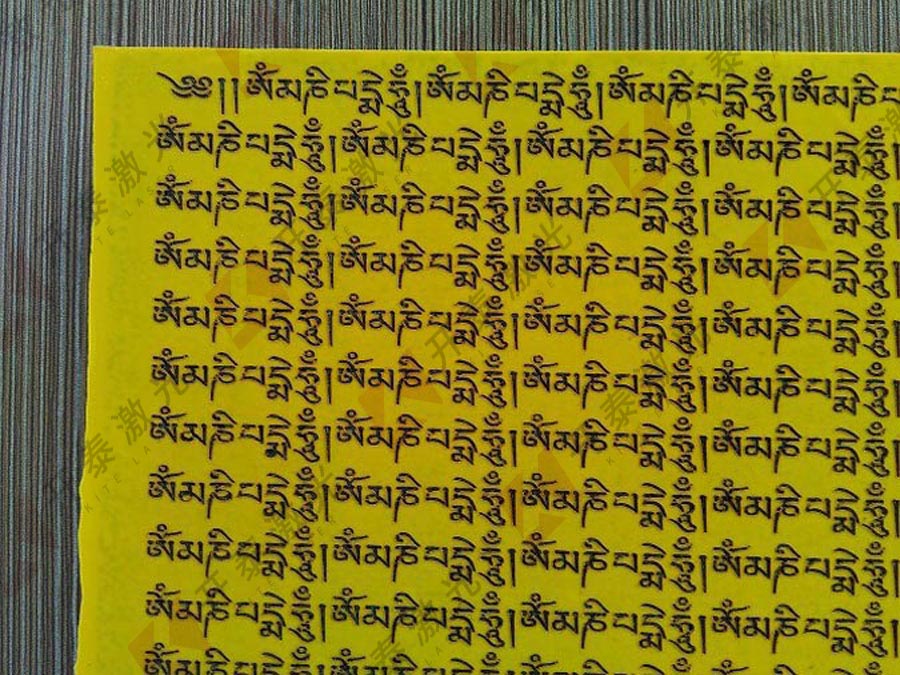 ༄༅།།ཨོཾམཎིཔདྨེཧཱུྃ།ཨོཾམཎིཔདྨེཧཱུྃ།ཨོཾམཎིཔདྨེཧཱུྃ།ཨོཾམཎིཔ
ཨོཾམཎིཔདྨེཧཱུྃ།ཨོཾམཎིཔདྨེཧཱུྃ།ཨོཾམཎིཔདྨེཧཱུྃ།ཨོཾམཎིཔདྨེཧཱུྃ།
ཨོཾམཎིཔདྨེཧཱུྃ།ཨོཾམཎིཔདྨེཧཱུྃ།ཨོཾམཎིཔདྨེཧཱུྃ།ཨོཾམཎིཔདྨེཧཱུྃ།
ཨོཾམཎིཔདྨེཧཱུྃ།ཨོཾམཎིཔདྨེཧཱུྃ།ཨོཾམཎིཔདྨེཧཱུྃ།ཨོཾམཎིཔདྨེཧཱུྃ།
ཨོཾམཎིཔདྨེཧཱུྃ།ཨོཾམཎིཔདྨེཧཱུྃ།ཨོཾམཎིཔདྨེཧཱུྃ།ཨོཾམཎིཔདྨེཧཱུྃ།
ཨོཾམཎིཔདྨེཧཱུྃ།ཨོཾམཎིཔདྨེཧཱུྃ།ཨོཾམཎིཔདྨེཧཱུྃ།ཨོཾམཎིཔདྨེཧཱུྃ།
ཨོཾམཎིཔདྨེཧཱུྃ།ཨོཾམཎིཔདྨེཧཱུྃ།ཨོཾམཎིཔདྨེཧཱུྃ།ཨོཾམཎིཔདྨེཧཱུྃ།
ཨོཾམཎིཔདྨེཧཱུྃ།ཨོཾམཎིཔདྨེཧཱུྃ།ཨོཾམཎིཔདྨེཧཱུྃ།ཨོཾམཎིཔདྨེཧཱུྃ།
ཨོཾམཎིཔདྨེཧཱུྃ།ཨོཾམཎིཔདྨེཧཱུྃ།ཨོཾམཎིཔདྨེཧཱུྃ།ཨོཾམཎིཔདྨེཧཱུྃ།
ཨོཾམཎིཔདྨེཧཱུྃ།ཨོཾམཎིཔདྨེཧཱུྃ།ཨོཾམཎིཔདྨེཧཱུྃ།ཨོཾམཎིཔདྨེཧཱུྃ།
开泰激光
KITE LASER